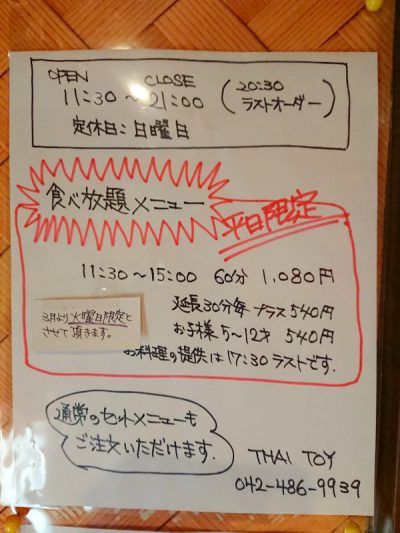 OPEN CLOSE
11:30～21:00 (20:30 ラストオーダー)
定休日:日曜日
食べ放題メニュー
平日限定
11:30～15:00 60分 1,080円
延長30分毎 プラス540円
お子様 5～12才 540円
お料理の提供は17:30ラストです.
3月より火曜日限定と
させて頂きます。
通常のセットメニューも
ご注文いただけます.
THAI TOY
042-486-9939